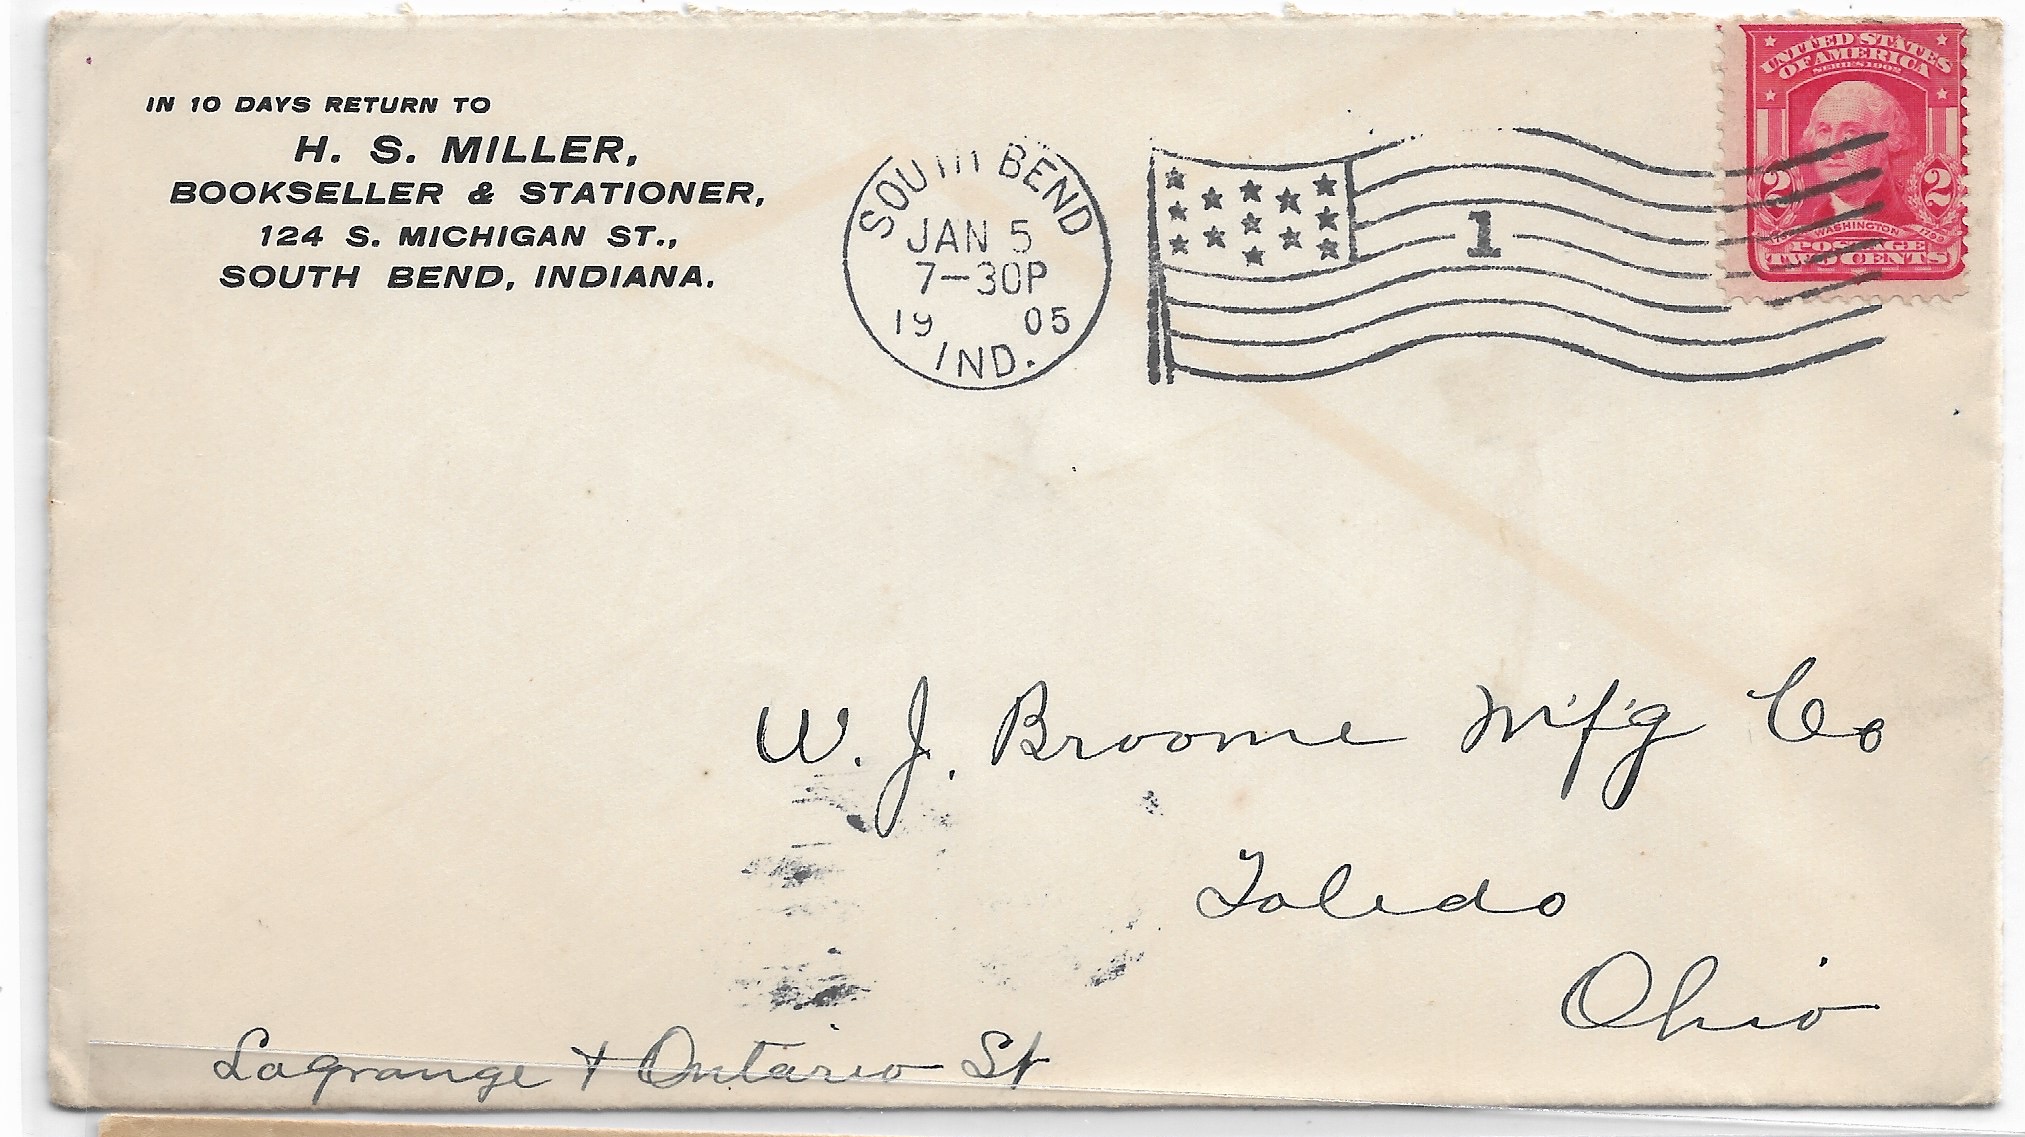 IN 10 DAYS RETURN TO
H. S. MILLER,
BOOKSELLER & STATIONER,
124 S. MICHIGAN ST.,
SOUTH BEND, INDIANA.
SOUTH BEND
JAN 5
7-30P
19 05
IND.
1
UNITED STATES
OF AMERICA
SERIES 1902
2 2
WASHINGTON
POSTAGE
TWO CENTS
W. J. Broome M'f'g Co
Toledo
Ohio
Lagrange & Ontario St